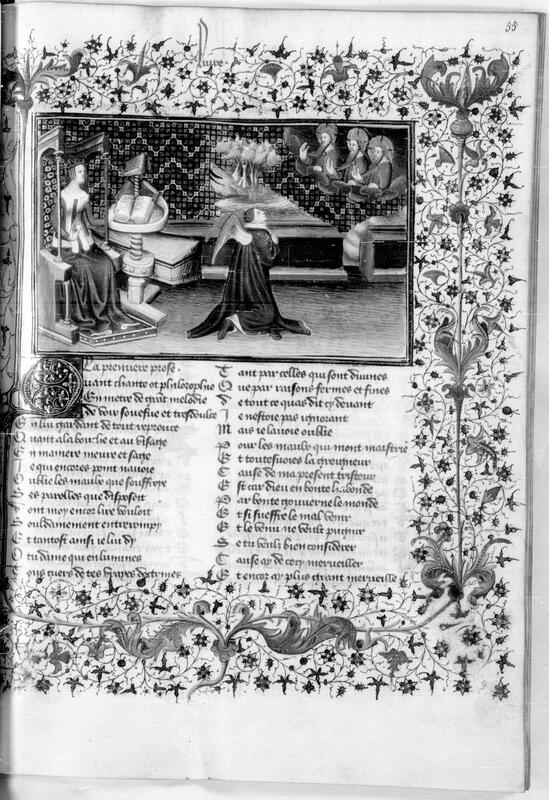 55
liure
La premiere prose.
Quant chante ot philosophie
En metre de grant melodie
De bouche souefue et tresdoulce
En luy gardant de tout reprouce
Quant a la bouche et au visage
En maniere meure et sage
Je qui encores point nauoie
Oublie les maulx que souffroye
Ses parolles que disposoit
Dont moy encor dire vouloit
Soubdainement entrerompy
Et tantost ainsi ie luy dy
O tu dame qui enlumines
Tous cuers de tes vrayes doctrines
Tant par celles qui sont diuines
Que par raisons fermes et fines
De tout ce quas dit cy deuant
Je nestoie pas ignorant
Mais ie lauoie oublie
Pour les maulx qui mont maistrie
Et toutesuoies la greigneur
Cause de ma present tristeur
Est car dieu en bonte habonde
Par bonte gouuerne le monde
Et si sueffre le mal venir
Et le bien ne veult pugnir
Se tu veulx bien considerer
Cause ay de cecy merueiller
Et encor ay plus grant merueille